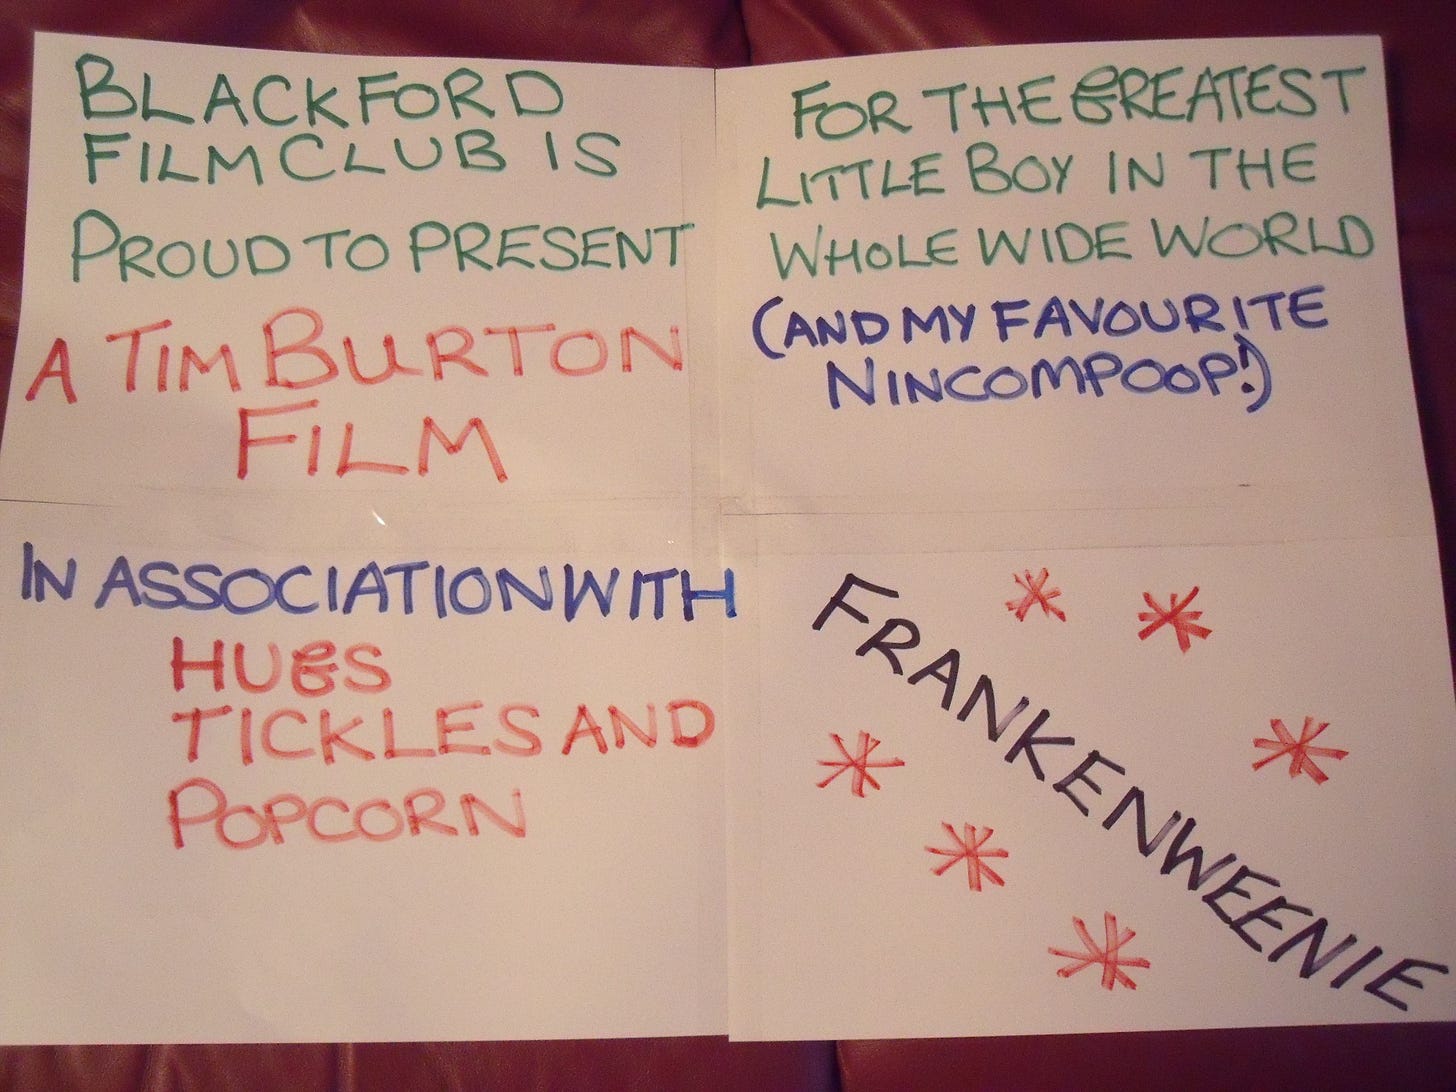 BLACKFORD
FILM CLUB IS
PROUD TO PRESENT
A TIM BURTON
FILM
FOR THE GREATEST
LITTLE BOY IN THE
WHOLE WIDE WORLD
(AND MY FAVOURITE
NINCOMPOOP!)
IN ASSOCIATION WITH
HUGS
TICKLES AND
POPCORN
FRANKENWEENIE